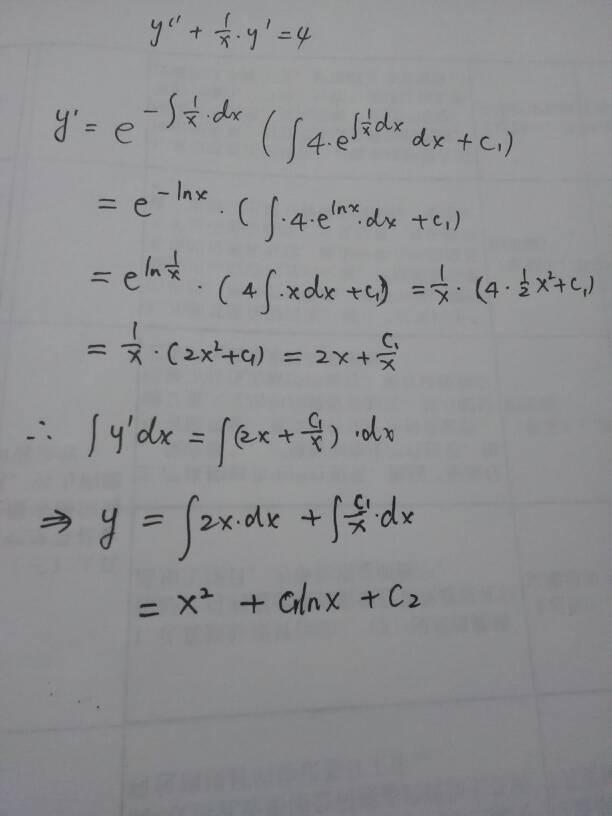 y'' + 1/x · y' = 4
y' = e^(-∫ 1/x · dx) (∫ 4 · e^(∫ 1/x dx) dx + C₁)
= e^(-lnx) · (∫ · 4 · e^(lnx) · dx + C₁)
= e^(ln 1/x) · (4∫ · xdx + C₁) = 1/x · (4 · 1/2 x² + C₁)
= 1/x · (2x² + C₁) = 2x + C₁/x
∴ ∫ y'dx = ∫(2x + C₁/x) · dx
⇒ y = ∫ 2x · dx + ∫ C₁/x · dx
= x² + C₁lnx + C₂